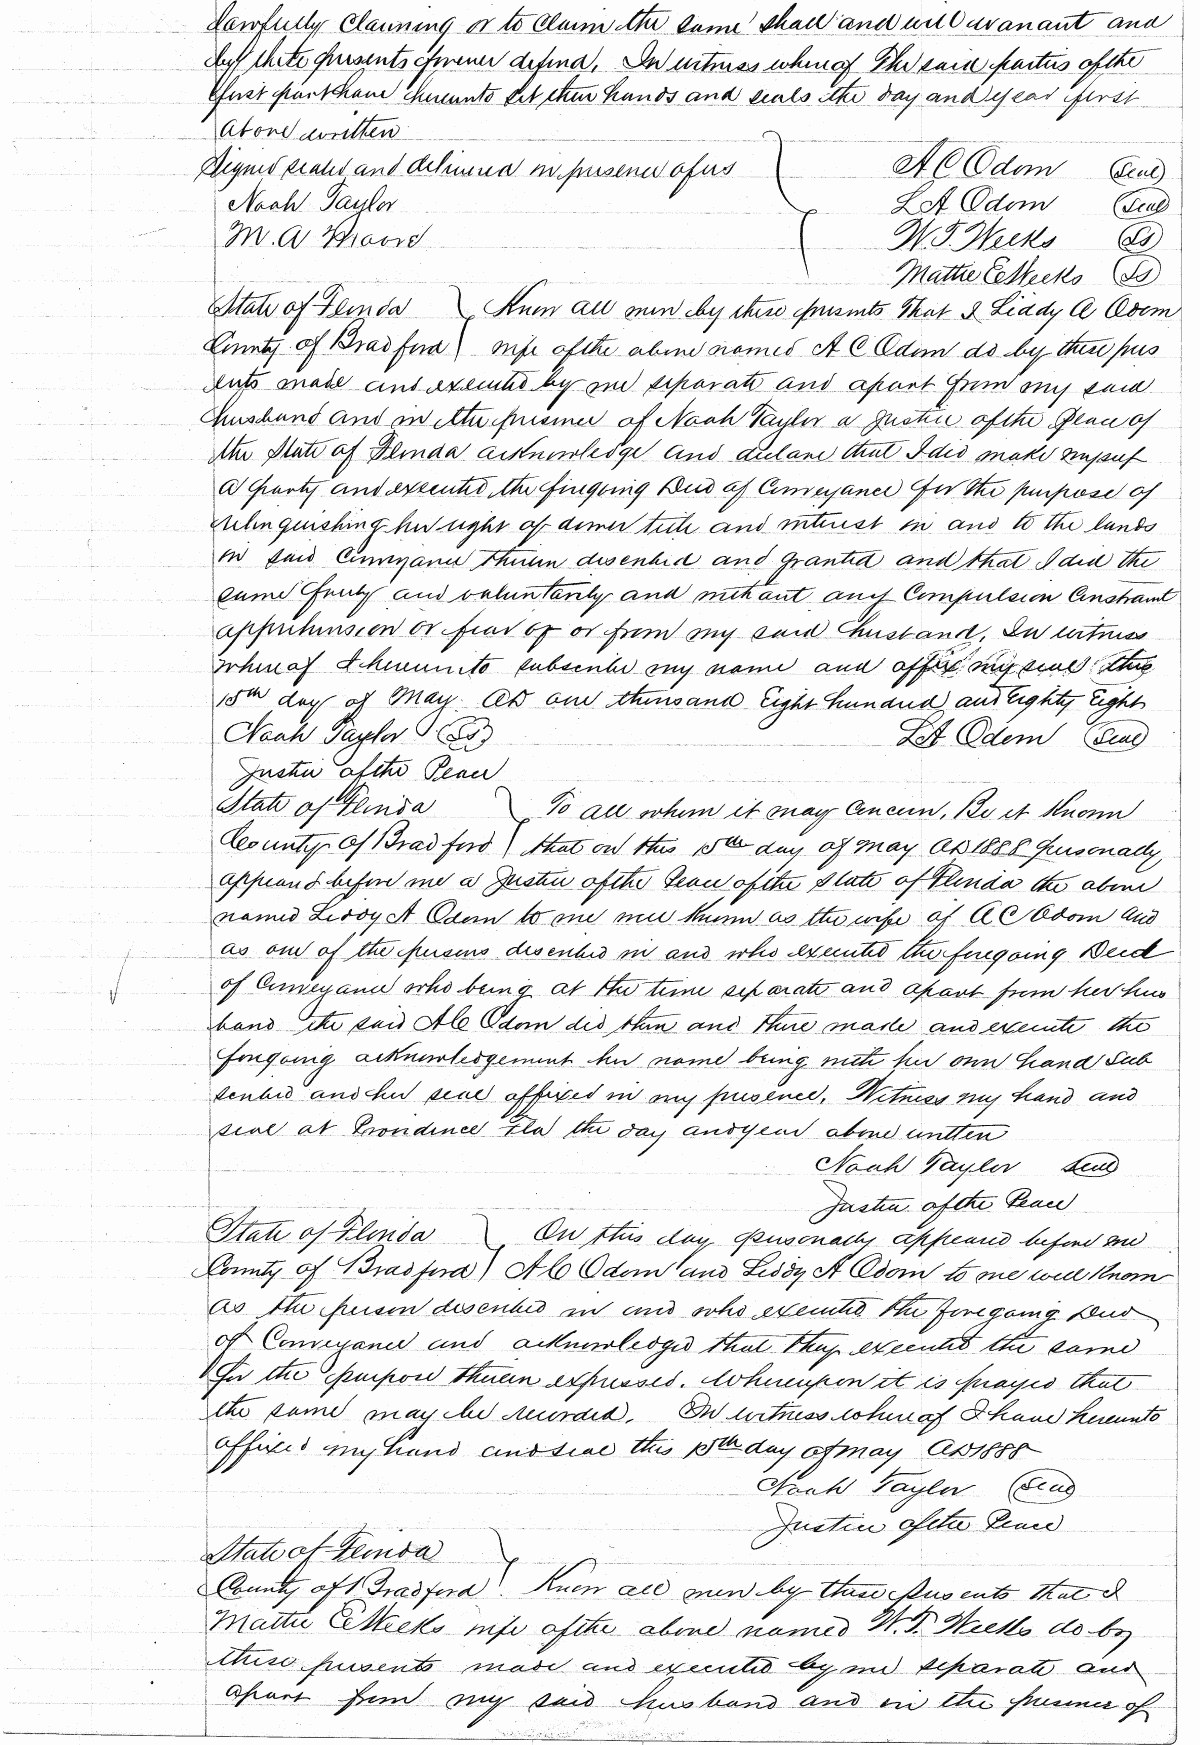 lawfully claiming or to claim the same shall and will warrant and
by these presents forever defend. In witness whereof The said parties of the
first part have hereunto set their hands and seals the day and year first
above written
Signed sealed and delivered in presence of us
A C Odom (Seal)
Noah Taylor
L A Odom (Seal)
M. A Moore
W. T. Weeks (LS)
Mattie E Weeks (LS)
State of Florida } Know all men by these presents That I Liddy A Odom
County of Bradford } wife of the above named A C Odom do by these pres
ents made and executed by me separate and apart from my said
husband and in the presence of Noah Taylor a Justice of the Peace of
the State of Florida acknowledge and declare that I did make myself
a party and executed the foregoing Deed of Conveyance for the purpose of
relinquishing her right of dower title and interest in and to the lands
in said Conveyance therein described and granted and that I did the
same freely and voluntarily and without any Compulsion Constraint
apprehension or fear of or from my said husband. In witness
whereof I hereunto subscribe my name and affix my seal this
15th day of May AD one thousand Eight hundred and Eighty Eight
Noah Taylor (LS)
L A Odom (Seal)
Justice of the Peace
State of Florida } To all whom it may Concern. Be it Known
County of Bradford } that on this 15th day of May AD 1888 personally
appeared before me a Justice of the Peace of the State of Florida the above
named Liddy A Odom to me well known as the wife of A C Odom and
as one of the persons described in and who executed the foregoing Deed
of Conveyance who being at the time separate and apart from her hus
band the said A C Odom did then and there made and execute the
foregoing acknowledgement her name being with her own hand Sub
scribed and her seal affixed in my presence. Witness my hand and
seal at Providence Fla the day and year above written
Noah Taylor Seal
Justice of the Peace
State of Florida } On this day personally appeared before me
County of Bradford } A C Odom and Liddy A Odom to me well Known
as the person described in and who executed the foregoing Deed
of Conveyance and acknowledged that they executed the same
for the purpose therein expressed. Whereupon it is prayed that
the same may be recorded. In witness whereof I have hereunto
affixed my hand and seal this 15th day of May AD 1888
Noah Taylor (Seal)
Justice of the Peace
State of Florida }
County of Bradford } Know all men by these presents that I
Mattie E Weeks wife of the above named W. T. Weeks do by
these presents made and executed by me separate and
apart from my said husband and in the presence of